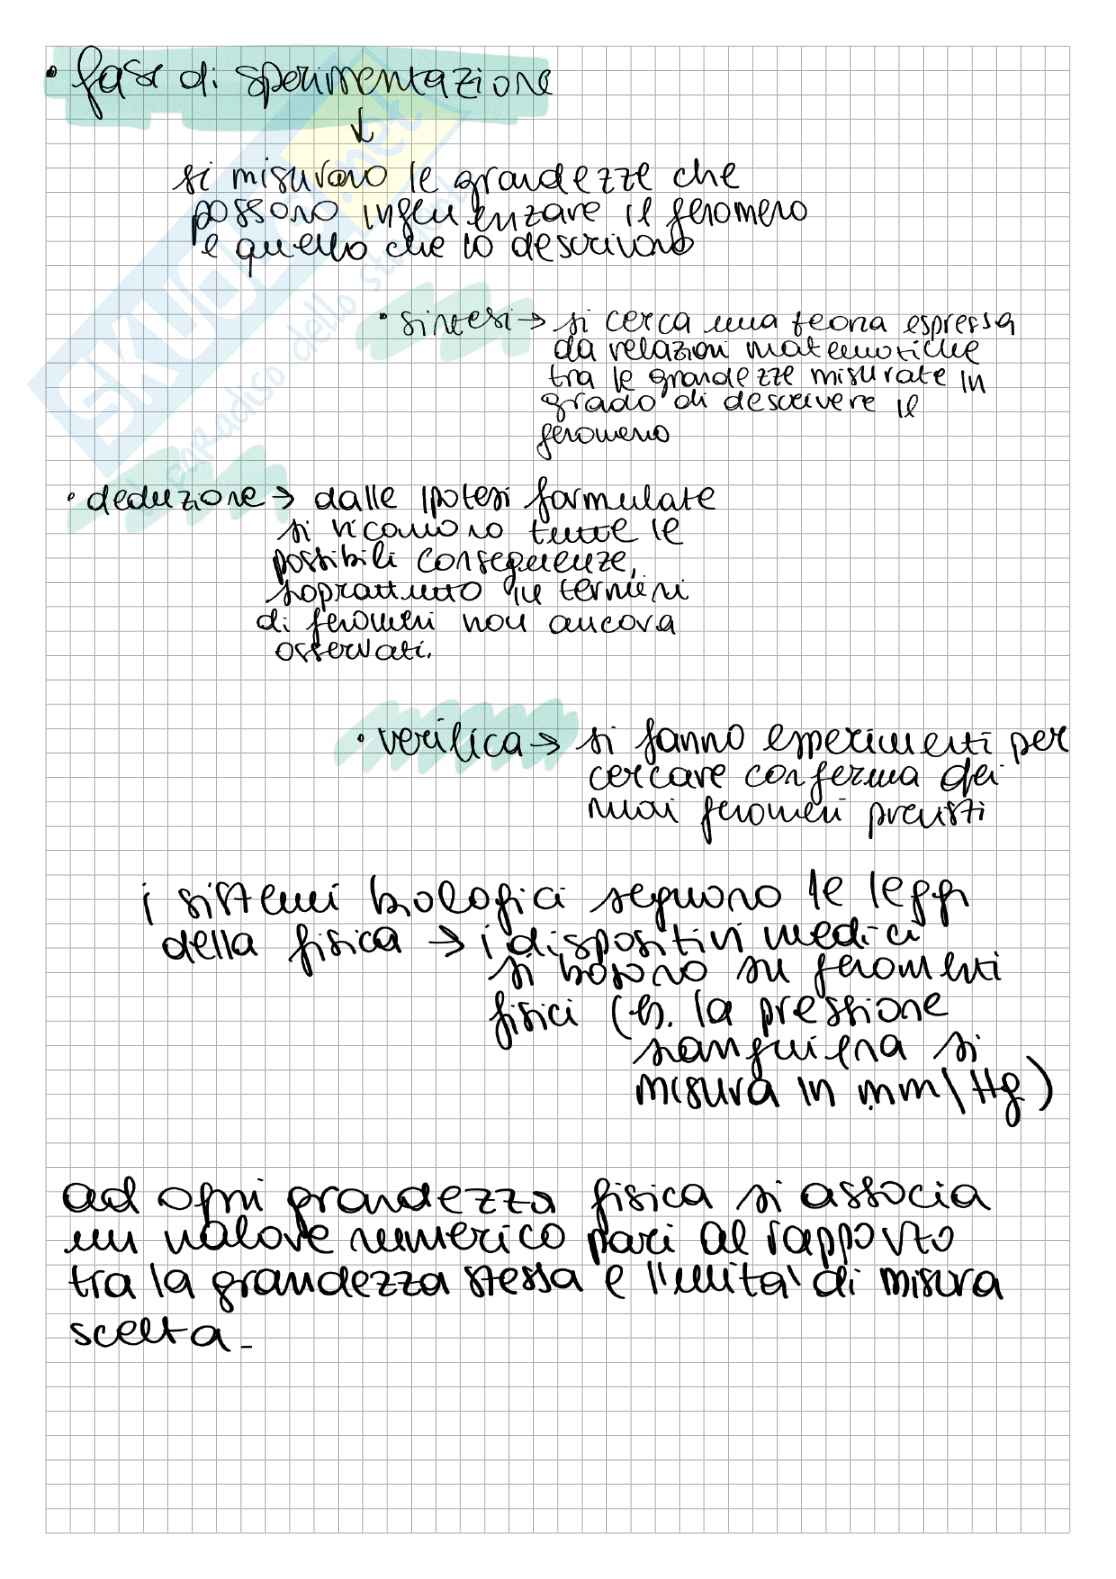 • fase di sperimentazione
↓
si misurano le grandezze che
possono influenzare il fenomeno
e quello che lo descrivono
• sintesi → si cerca una teoria espressa
da relazioni matematiche
tra le grandezze misurate in
grado di descrivere il
fenomeno
• deduzione → dalle ipotesi formulate
si ricavano tutte le
possibili conseguenze,
soprattutto in termini
di fenomeni non ancora
osservati.
• verifica → si fanno esperimenti per
cercare conferma dei
nuovi fenomeni previsti
i sistemi biologici seguono le leggi
della fisica → i dispositivi medici
si basano su fenomeni
fisici (es. la pressione
sanguigna si
misura in mm\Hg)
ad ogni grandezza fisica si associa
un valore numerico pari al rapporto
tra la grandezza stessa e l'unità di misura
scelta -
SKUOLA.net
il paradiso dello studente